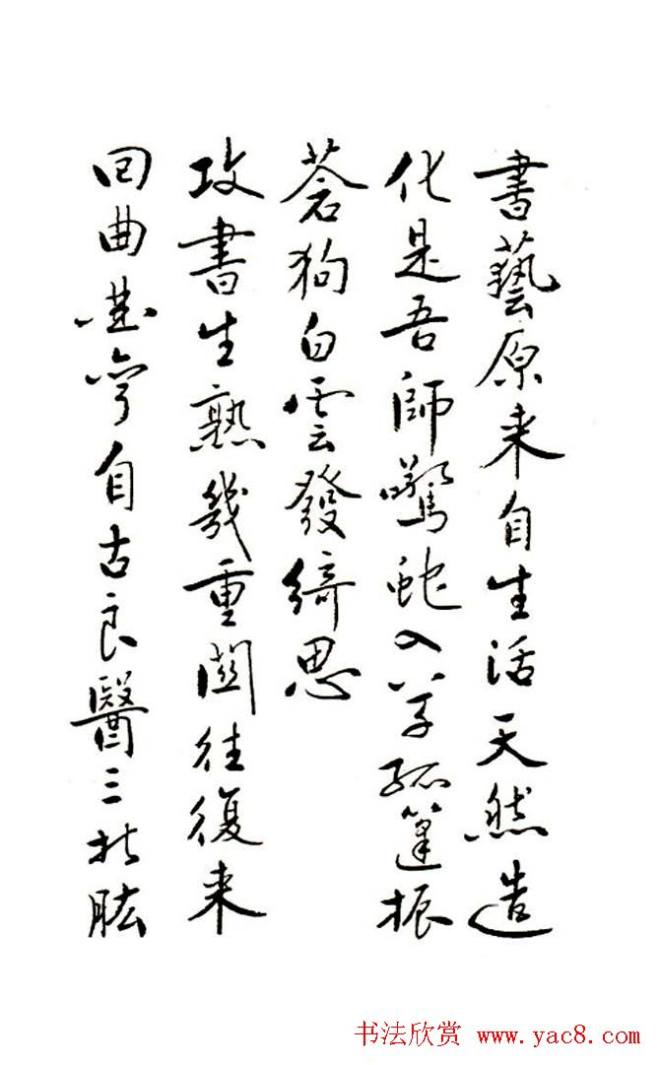 書藝原来自生活天然造
化是吾師驚蛇入草孤篷振
蒼狗白雲發綺思
攻書生熟幾重關往復来
回曲自古良醫三折肱
书法欣赏 www.yac8.com